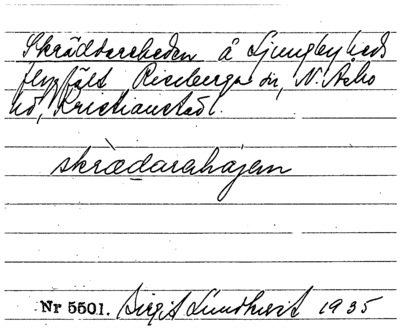 Skräddareheden å Ljungbyheds
flygfält Riseberga sn, N. Åsbo
hd, Kristianstad.
skrædarehájem
Nr 5501. Birgit Lundkvist 1935